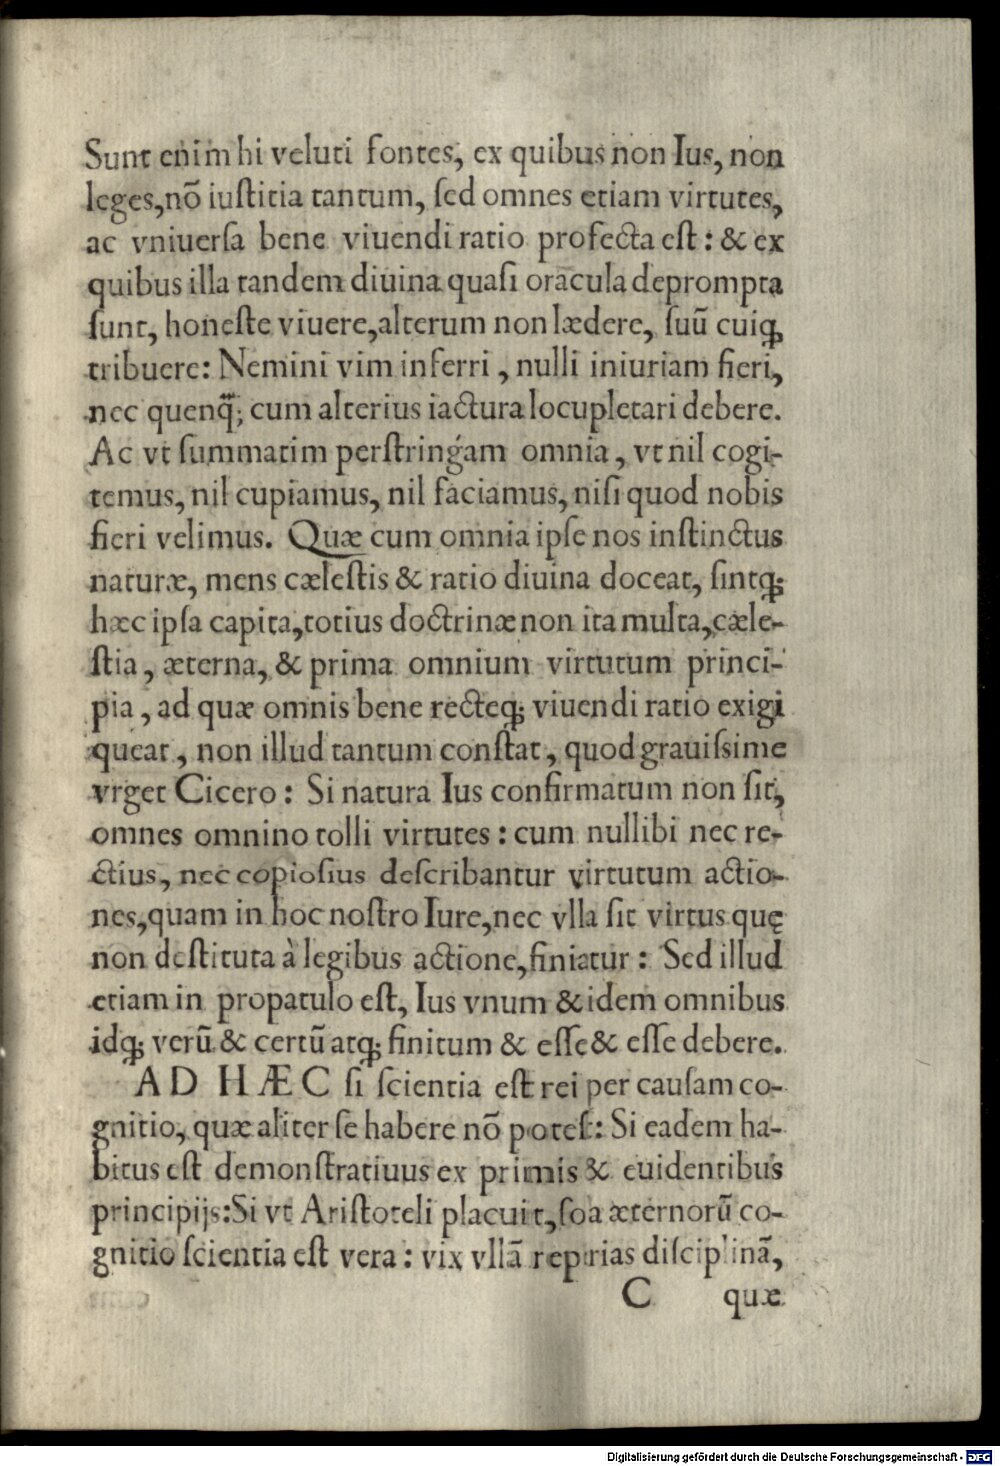 Sunt enim hi veluti fontes, ex quibus non Ius, non
leges, nõ iuſtitia tantum, ſed omnes etiam virtutes,
ac vniuerſa bene viuendi ratio profecta eſt: & ex
quibus illa tandem diuina quaſi oracula deprompta
ſunt, honeſte viuere, alterum non lædere, ſuũ cuiq́;
tribuere: Nemini vim inferri, nulli iniuriam fieri,
nec quenq̃; cum alterius iactura locupletari debere.
Ac vt ſummatim perſtringam omnia, vt nil cogi-
temus, nil cupiamus, nil faciamus, niſi quod nobis
fieri velimus. Quæ cum omnia ipſe nos inſtinctus
naturæ, mens cæleſtis & ratio diuina doceat, ſintq́;
hæc ipſa capita, totius doctrinæ non ita multa, cæle-
ſtia, æterna, & prima omnium virtutum princi-
pia, ad quæ omnis bene recteq́; viuendi ratio exigi
queat, non illud tantum conſtat, quod grauiſsime
vrget Cicero: Si natura Ius confirmatum non ſit,
omnes omnino tolli virtutes: cum nullibi nec re-
ctius, nec copioſius deſcribantur virtutum actio-
nes, quam in hoc noſtro Iure, nec vlla ſit virtus quę
non deſtituta à legibus actione, finiatur: Sed illud
etiam in propatulo eſt, Ius vnum & idem omnibus
idq́; verũ & certũ atq́; finitum & eſſe & eſſe debere.
AD HÆC ſi ſcientia eſt rei per cauſam co-
gnitio, quæ aliter ſe habere nõ poteſt: Si eadem ha-
bitus eſt demonſtratiuus ex primis & euidentibus
principijs: Si vt Ariſtoteli placuit, ſola æternorũ co-
gnitio ſcientia eſt vera: vix vllã reperias diſciplinã,
C quæ
Digitalisierung gefördert durch die Deutsche Forschungsgemeinschaft - DFG